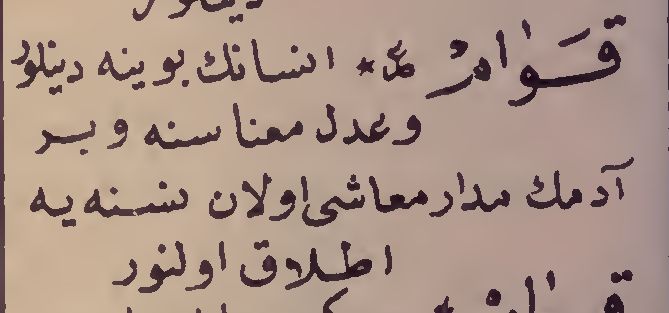 دینلور
قَوَامْ ع * انسانك بوینه دینلور
وعدل معناسنه و بر
آدمك مدار معاشی اولان نسنه یه
اطلاق اولنور